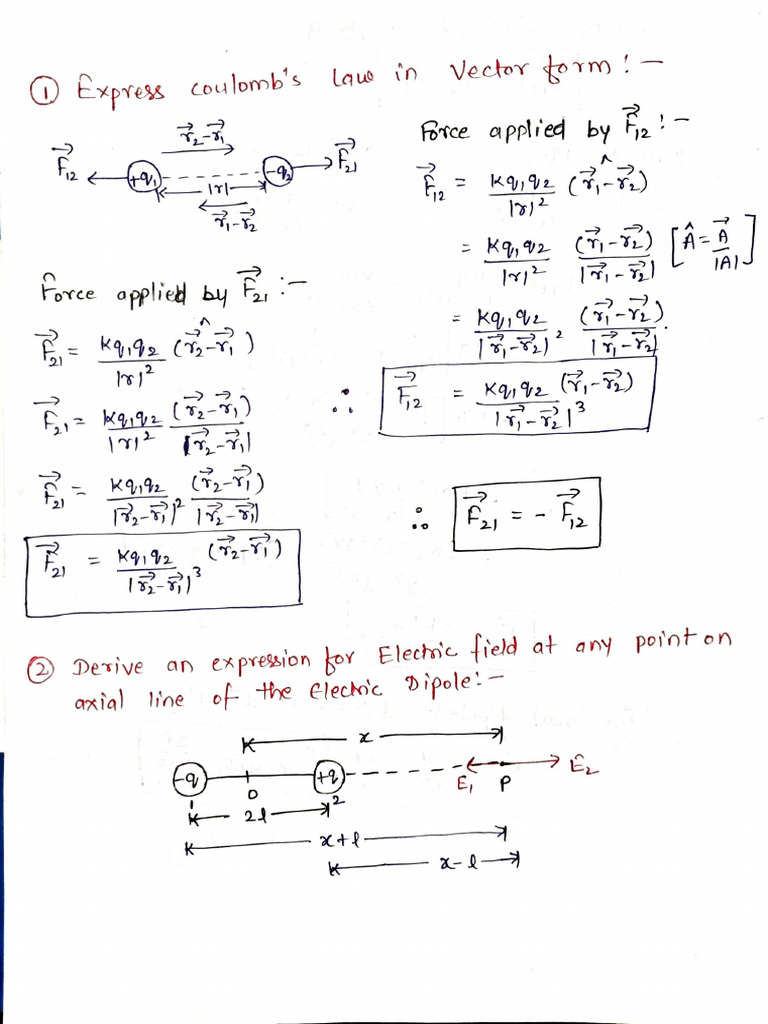 ① Express coulomb's law in vector form :-
r⃗₂-r⃗₁
F⃗₁₂ +q₁ -q₂ F⃗₂₁
|r|
r⃗₁-r⃗₂
Force applied by F⃗₂₁ :-
F⃗₂₁ = Kq₁q₂/|r|² (r⃗₂-r⃗₁)^
F⃗₂₁ = Kq₁q₂/|r|² (r⃗₂-r⃗₁)/|r⃗₂-r⃗₁|
F⃗₂₁ = Kq₁q₂/|r⃗₂-r⃗₁|² (r⃗₂-r⃗₁)/|r⃗₂-r⃗₁|
F⃗₂₁ = Kq₁q₂/|r⃗₂-r⃗₁|³ (r⃗₂-r⃗₁)
Force applied by F⃗₁₂ :-
F⃗₁₂ = Kq₁q₂/|r|² (r⃗₁-r⃗₂)^
= Kq₁q₂/|r|² (r⃗₁-r⃗₂)/|r⃗₁-r⃗₂| [Â = A⃗/|A|]
= Kq₁q₂/|r⃗₁-r⃗₂|² (r⃗₁-r⃗₂)/|r⃗₁-r⃗₂|.
∴ F⃗₁₂ = Kq₁q₂ (r⃗₁-r⃗₂)/|r⃗₁-r⃗₂|³
∴ F⃗₂₁ = - F⃗₁₂
② Derive an expression for Electric field at any point on
axial line of the Electric Dipole :-
x
-q +q E₁ P E₂
O
2l 2
x+l
x-l